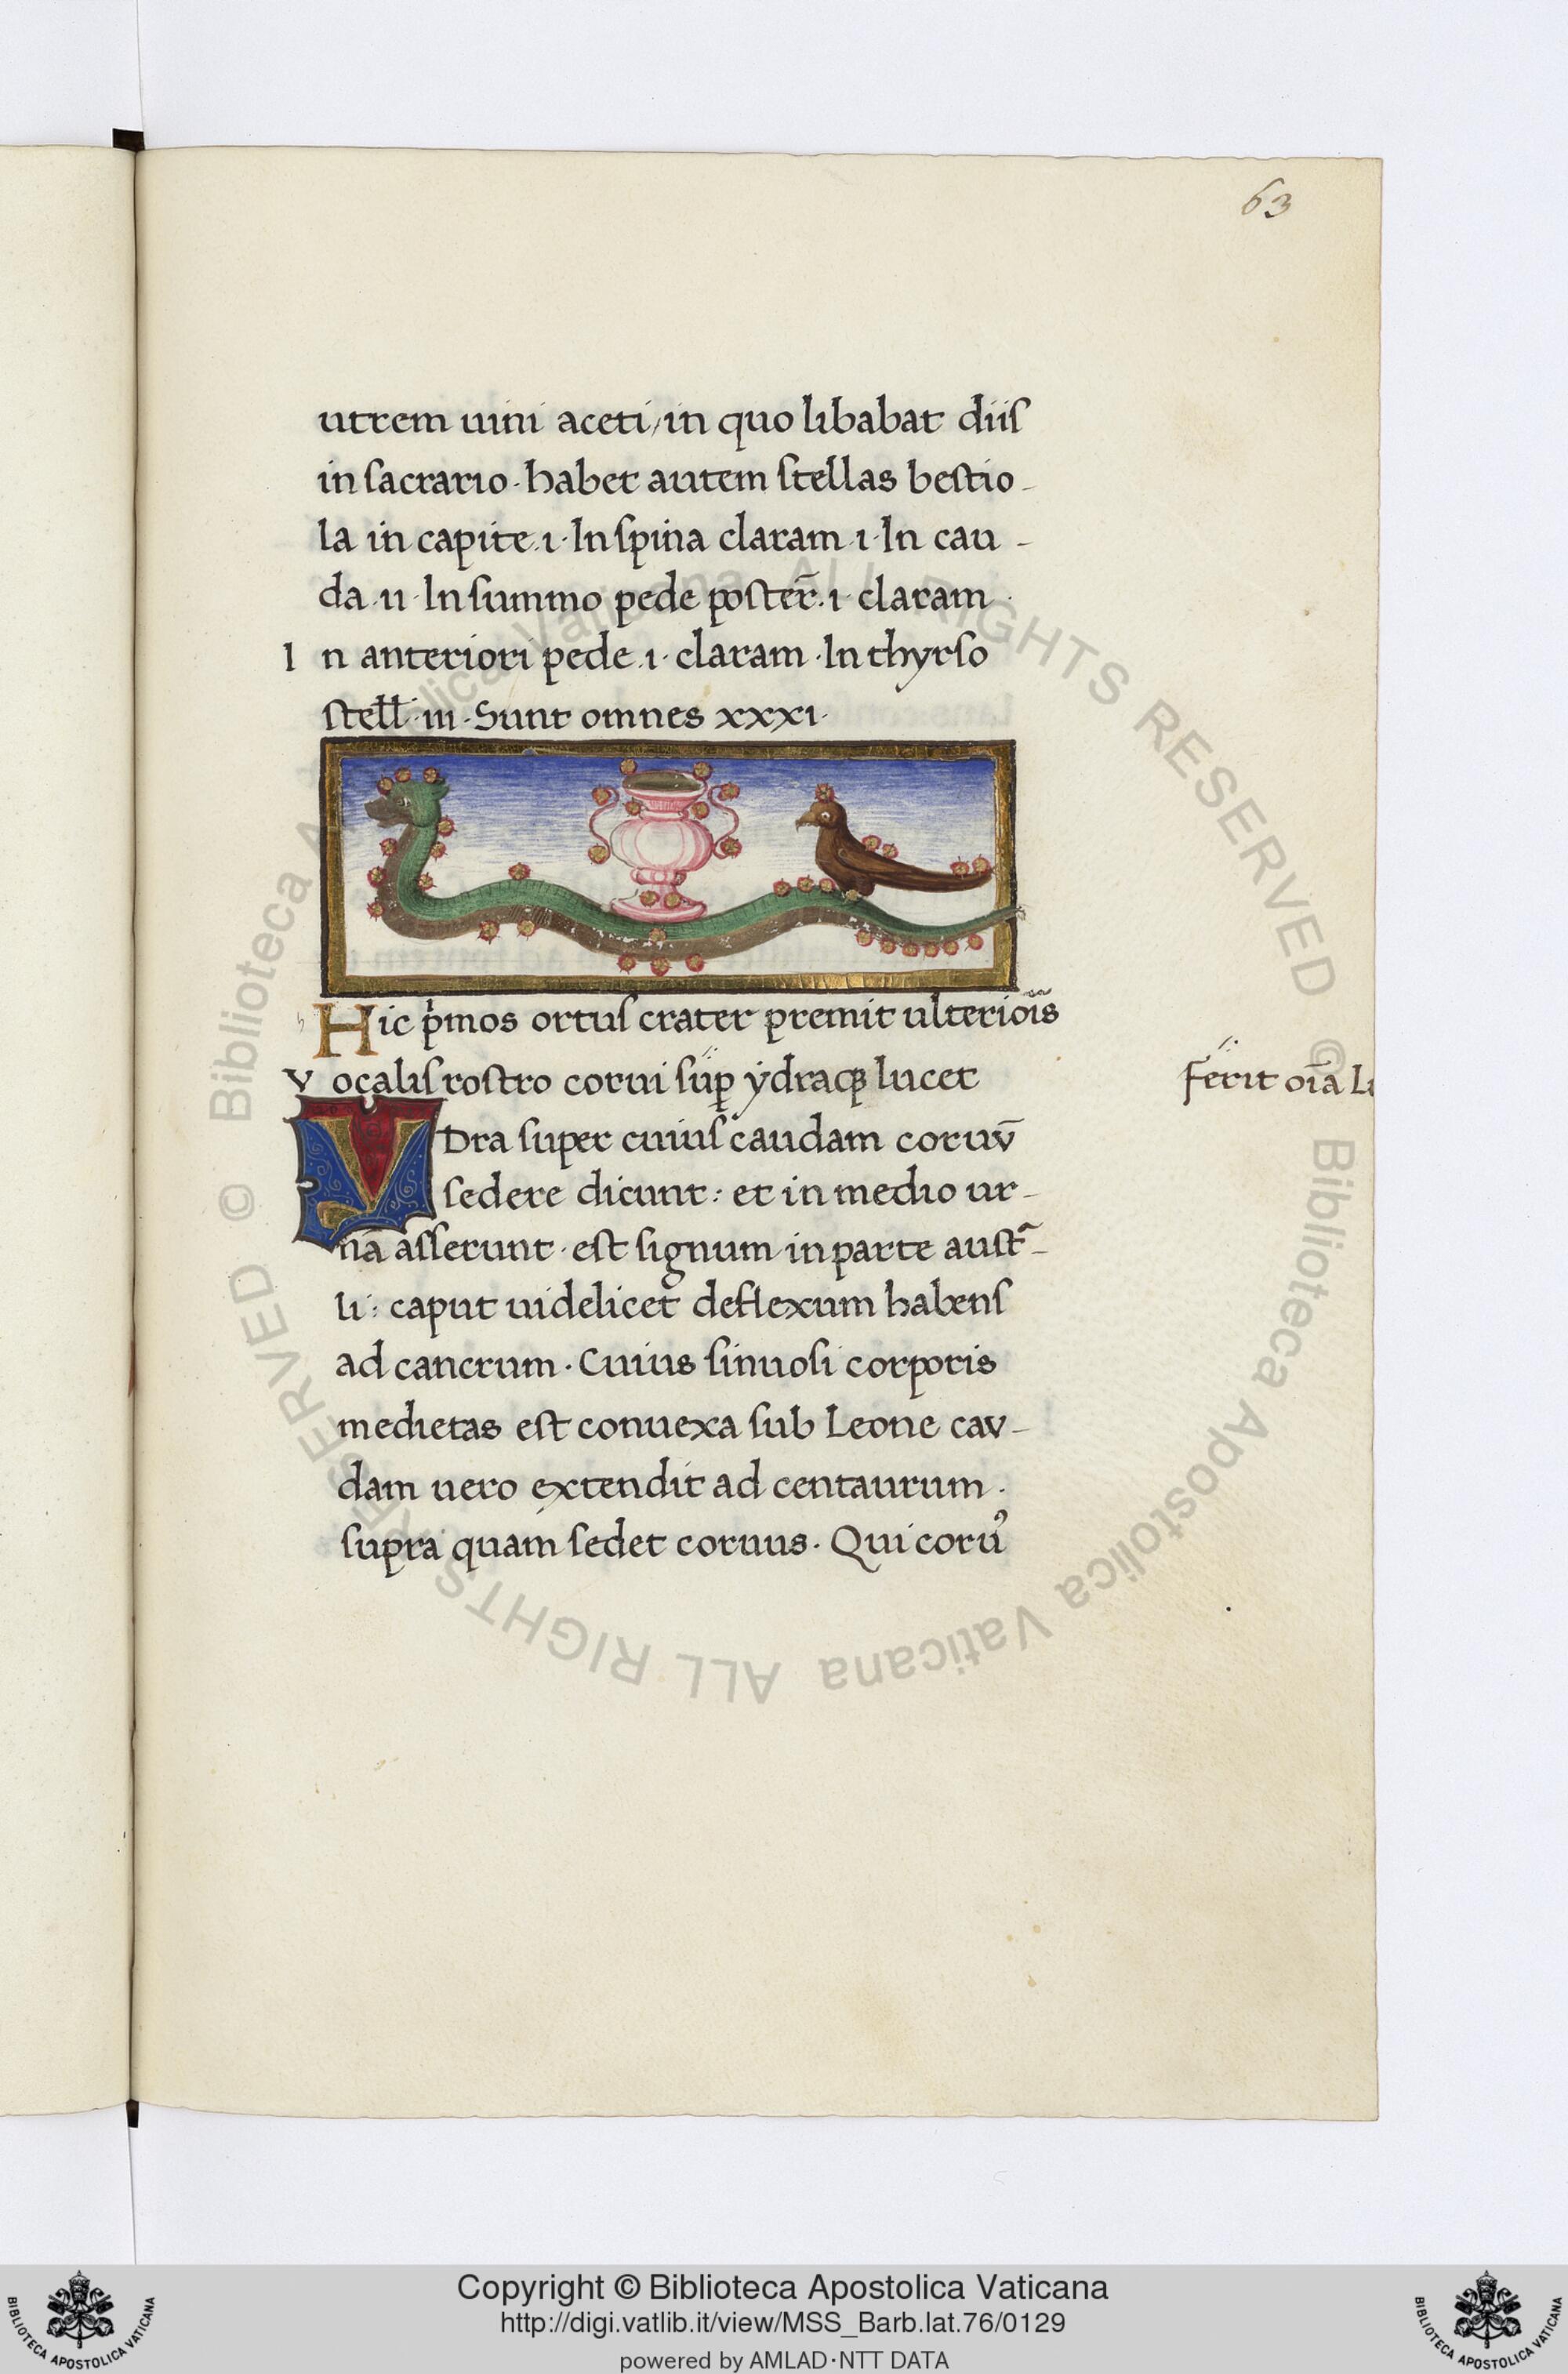 63
utrem uini aceti/in quo libabat diiſ
in ſacrario·habet autem ſtellas beſtio-
la in capite.ı·In ſpina claram.ı·In cau-
da.ıı·In ſummo pede poſter̄.ı·claram·
In anteriori pede.ı·claram·In thyrſo
ſtell̄·ııı·Sunt omnes xxxı·
Hic pͥmos ortuſ crater premit ulterioı̄s
Vocaliſ roſtro corui ſuꝑ ẏdraqꝫ lucet
ferit oı̄a
VDra ſuper cuiuſ caudam coruv̄
ſedere dicunt: et in medio ur-
nā aſſerunt·eſt ſignum in parte auſtᷓ-
li: caput uidelicet deflexum habenſ
ad cancrum·Cuius ſinuoſi corporis
medietas eſt conuexa ſub Leone cav-
dam uero extendit ad centaurum·
ſupra quam ſedet coruus·Qui coruꝰ
Biblioteca Apostolica Vaticana ALL RIGHTS RESERVED © Biblioteca Apostolica Vaticana ALL RIGHTS RESERVED ©
Copyright © Biblioteca Apostolica Vaticana
http://digi.vatlib.it/view/MSS_Barb.lat.76/0129
powered by AMLAD·NTT DATA
BIBLIOTECA APOSTOLICA VATICANA
BIBLIOTECA APOSTOLICA VATICANA